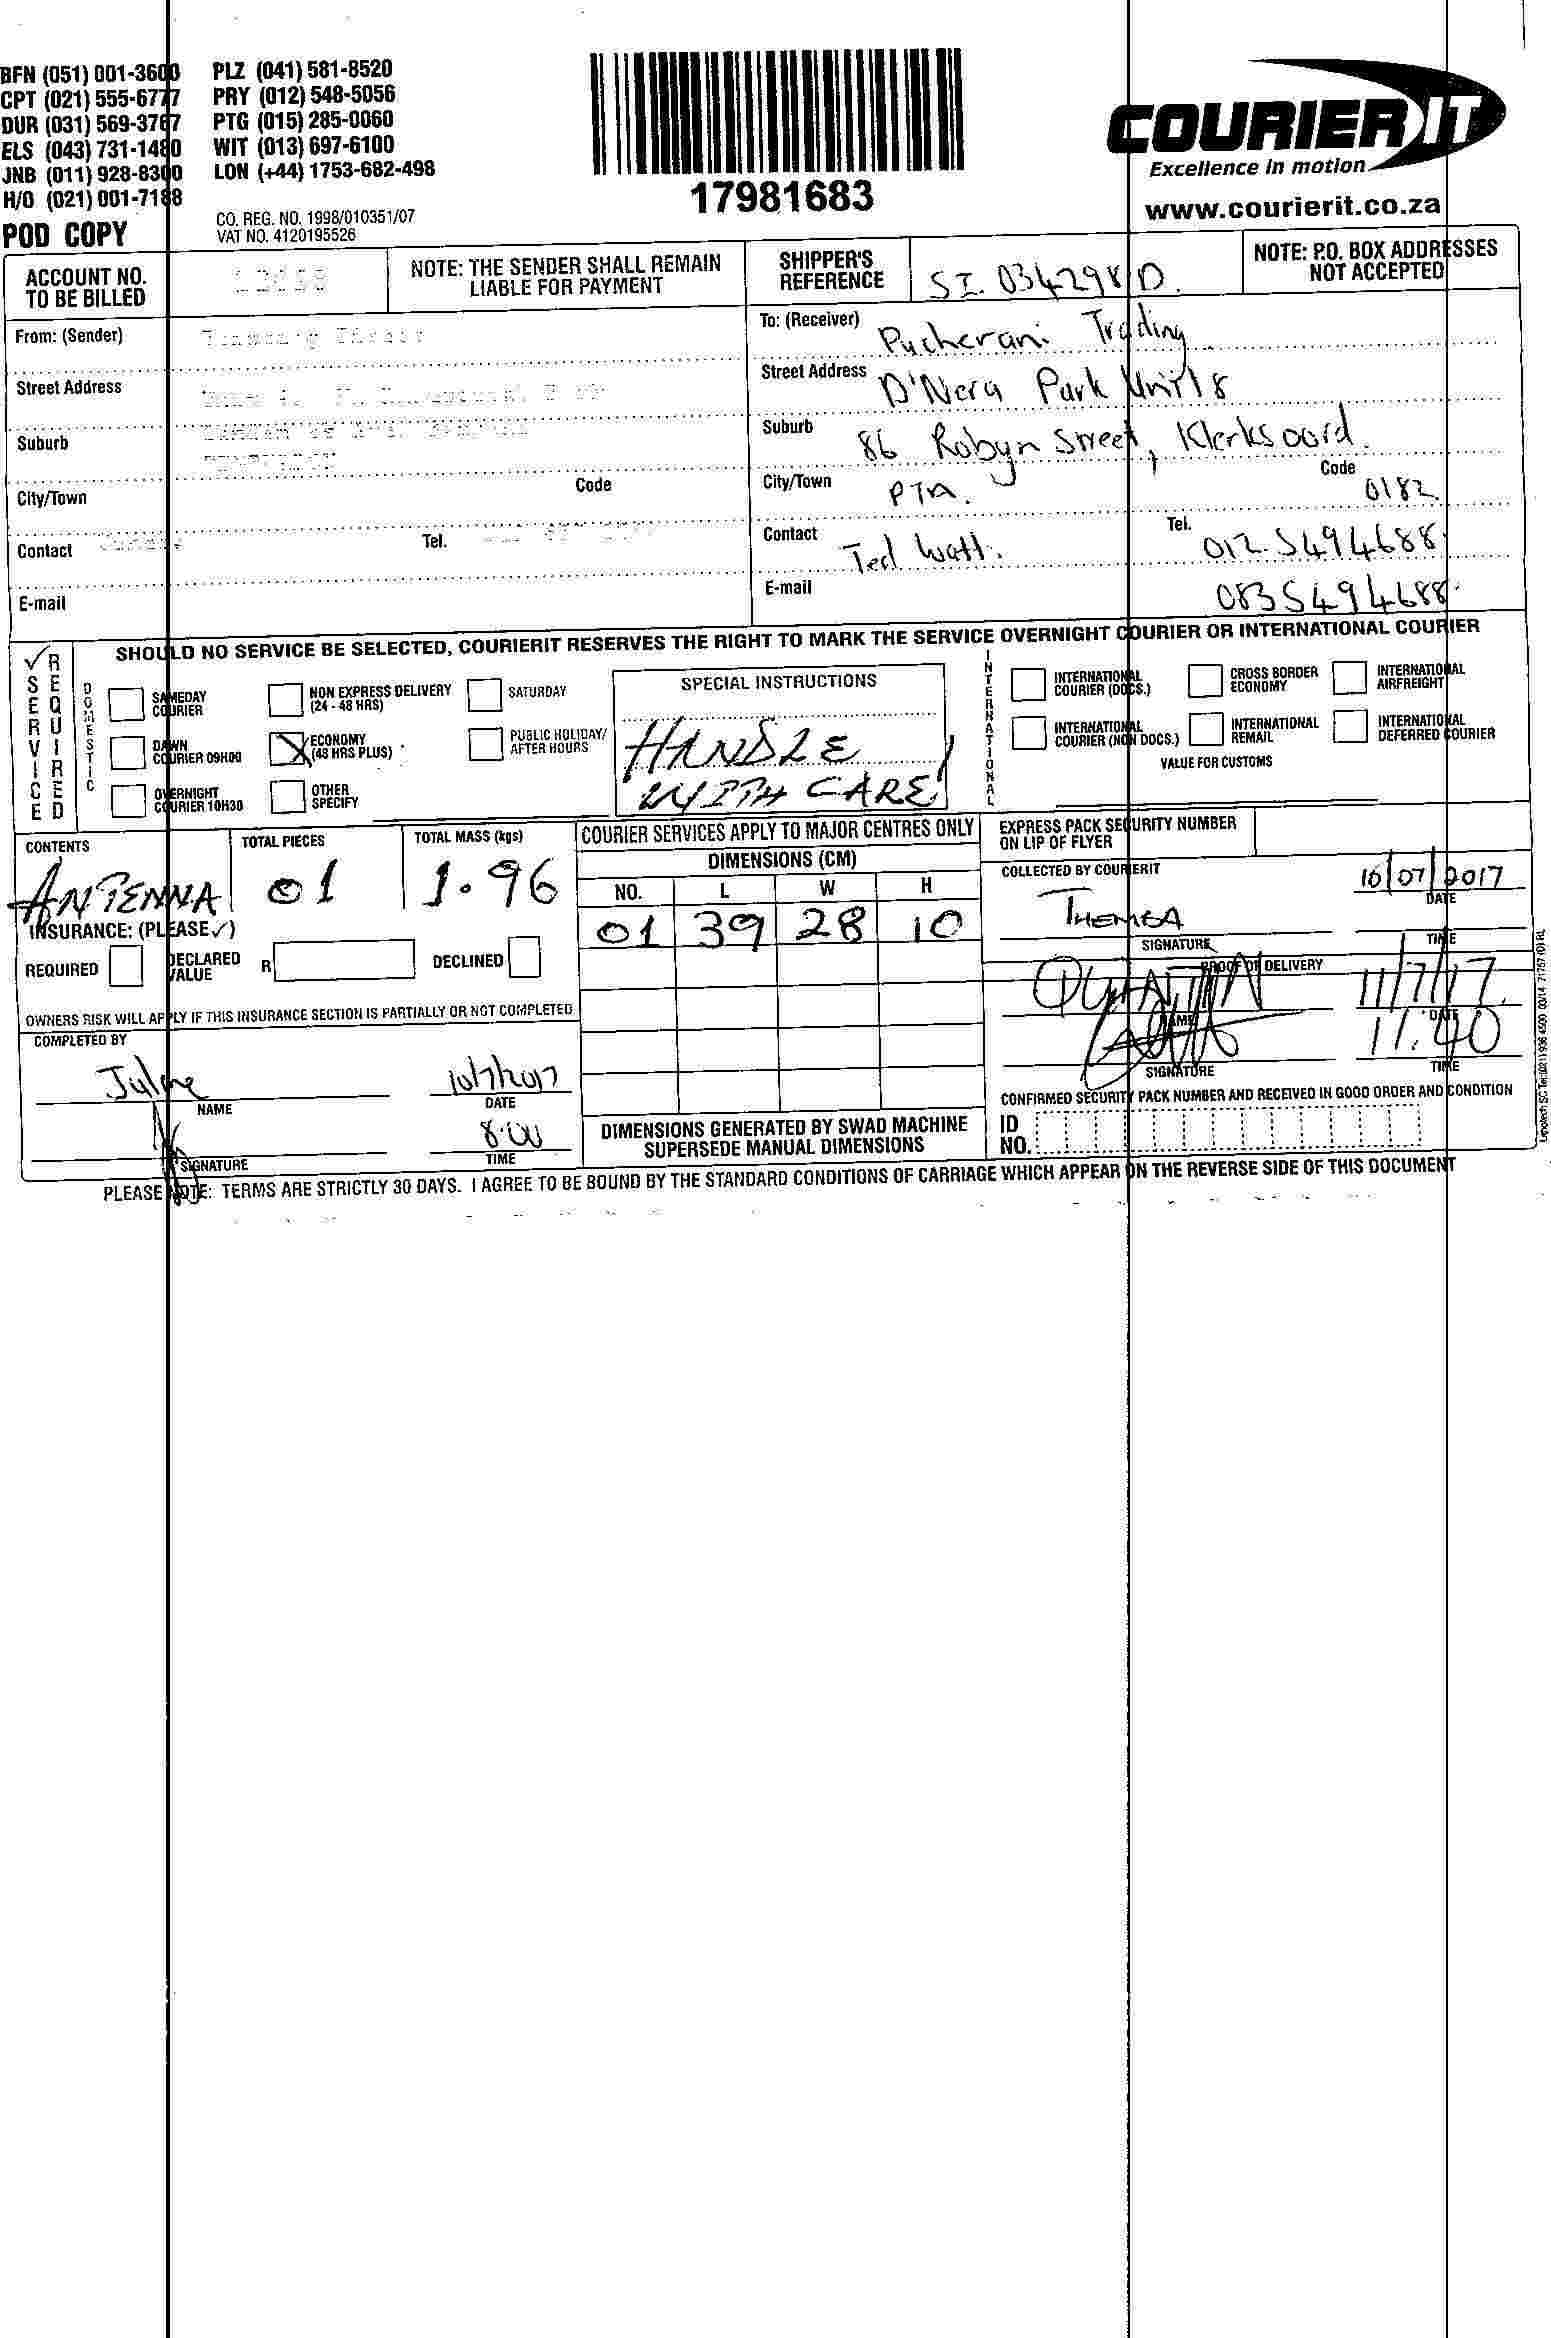 BFN (051) 001-3600 PLZ (041) 581-8520
CPT (021) 555-6777 PRY (012) 548-5056
DUR (031) 569-3767 PTG (015) 285-0060
ELS (043) 731-1480 WIT (013) 697-6100
JNB (011) 928-8300 LON (+44) 1753-682-498
H/O (021) 001-7188
POD COPY
CO. REG. NO. 1998/010351/07
VAT NO. 4120195526
17981683
COURIER IT
Excellence in motion
www.courierit.co.za
ACCOUNT NO. TO BE BILLED
NOTE: THE SENDER SHALL REMAIN LIABLE FOR PAYMENT
SHIPPER'S REFERENCE SI.034298D.
NOTE: P.O. BOX ADDRESSES NOT ACCEPTED
From: (Sender)
Street Address
Suburb
City/Town Code
Contact Tel.
E-mail
To: (Receiver) Pucherani Trading
Street Address D'Nera Park Unit 8
Suburb 86 Robyn Street, Klerksoord.
City/Town PTA. Code 0182.
Contact Ted Watt. Tel. 012 5494688.
E-mail 083 5494688.
✓ SERVICE REQUIRED
SHOULD NO SERVICE BE SELECTED, COURIERIT RESERVES THE RIGHT TO MARK THE SERVICE OVERNIGHT COURIER OR INTERNATIONAL COURIER
DOMESTIC
SAMEDAY COURIER
NON EXPRESS DELIVERY (24 - 48 HRS)
SATURDAY
DAWN COURIER 09H00
X ECONOMY (48 HRS PLUS)
PUBLIC HOLIDAY/ AFTER HOURS
OVERNIGHT COURIER 10H30
OTHER SPECIFY
SPECIAL INSTRUCTIONS
HANDLE
WITH CARE!
INTERNATIONAL
INTERNATIONAL COURIER (DOCS.)
CROSS BORDER ECONOMY
INTERNATIONAL AIRFREIGHT
INTERNATIONAL COURIER (NON DOCS.)
INTERNATIONAL REMAIL
INTERNATIONAL DEFERRED COURIER
VALUE FOR CUSTOMS
CONTENTS ANTENNA
TOTAL PIECES 01
TOTAL MASS (kgs) 1.96
INSURANCE: (PLEASE ✓)
REQUIRED DECLARED VALUE R DECLINED
OWNERS RISK WILL APPLY IF THIS INSURANCE SECTION IS PARTIALLY OR NOT COMPLETED
COMPLETED BY
10/7/2017
NAME DATE
8:00
SIGNATURE TIME
COURIER SERVICES APPLY TO MAJOR CENTRES ONLY
DIMENSIONS (CM)
NO. L W H
01 39 28 10
DIMENSIONS GENERATED BY SWAD MACHINE
SUPERSEDE MANUAL DIMENSIONS
EXPRESS PACK SECURITY NUMBER
ON LIP OF FLYER
COLLECTED BY COURIERIT
THEMBA 10/07/2017
DATE
SIGNATURE TIME
PROOF OF DELIVERY
11/7/17.
NAME DATE
11:40
SIGNATURE TIME
CONFIRMED SECURITY PACK NUMBER AND RECEIVED IN GOOD ORDER AND CONDITION
ID NO.
PLEASE NOTE: TERMS ARE STRICTLY 30 DAYS. I AGREE TO BE BOUND BY THE STANDARD CONDITIONS OF CARRIAGE WHICH APPEAR ON THE REVERSE SIDE OF THIS DOCUMENT